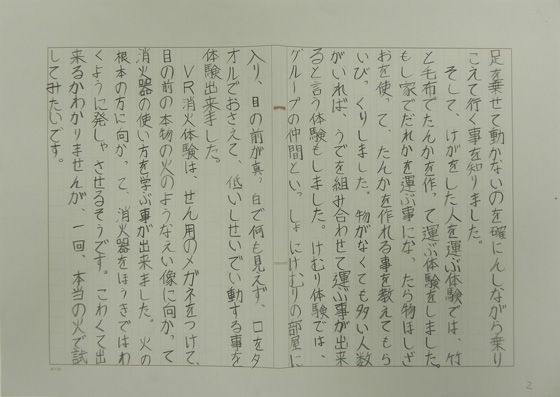 足を乗せて動かないのを確にんしながら乗り
こえて行く事を知りました。
そして、けがをした人を運ぶ体験では、竹
と毛布でたんかを作って運ぶ体験をしました。
もし家でだれかを運ぶ事になったら物ほしざ
おを使って、たんかを作れる事を教えてもら
いびっくりしました。物がなくても多い人数
がいれば、うでを組み合わせて運ぶ事が出来
ると言う体験もしました。けむり体験では、
グループの仲間といっしょにけむりの部屋に
入り、目の前が真っ白で何も見えず、口をタ
オルでおさえて、低いしせいでい動する事を
体験出来ました。
VR消火体験は、せん用のメガネをつけて、
目の前の本物の火のようなえい像に向かって
消火器の使い方を学ぶ事が出来ました。火の
根本の方に向かって、消火器をほうきではわ
くように発しゃさせるそうです。こわくて出
来るかわかりませんが、一回、本当の火で試
してみたいです。
2